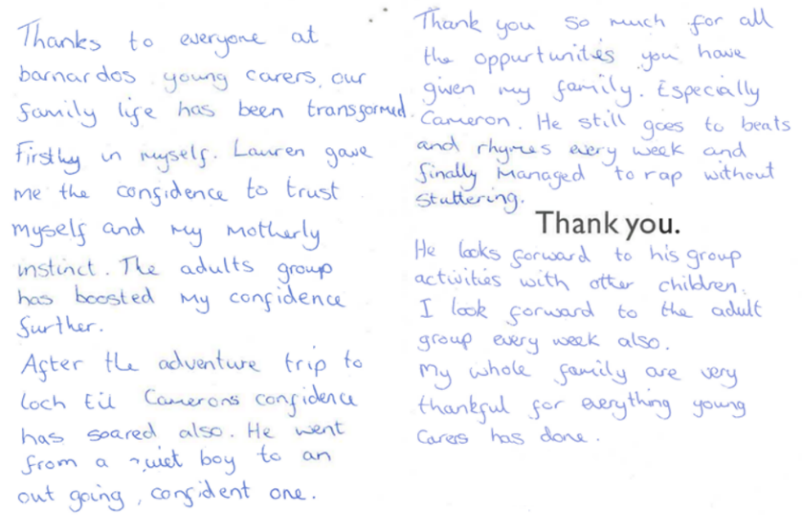 Thanks to everyone at
barnardos young carers, our
family life has been transformed.
Firstly in myself. Lauren gave
me the confidence to trust
myself and my motherly
instinct. The adults group
has boosted my confidence
further.
After the adventure trip to
loch Eil Camerons confidence
has soared also. He went
from a quiet boy to an
out going, confident one.
Thank you so much for all
the oppurtunities you have
given my family. Especially
Cameron. He still goes to beats
and rhymes every week and
finally managed to rap without
stuttering.
Thank you.
He looks forward to his group
activities with other children.
I look forward to the adult
group every week also.
My whole family are very
thankful for everything young
carers has done.